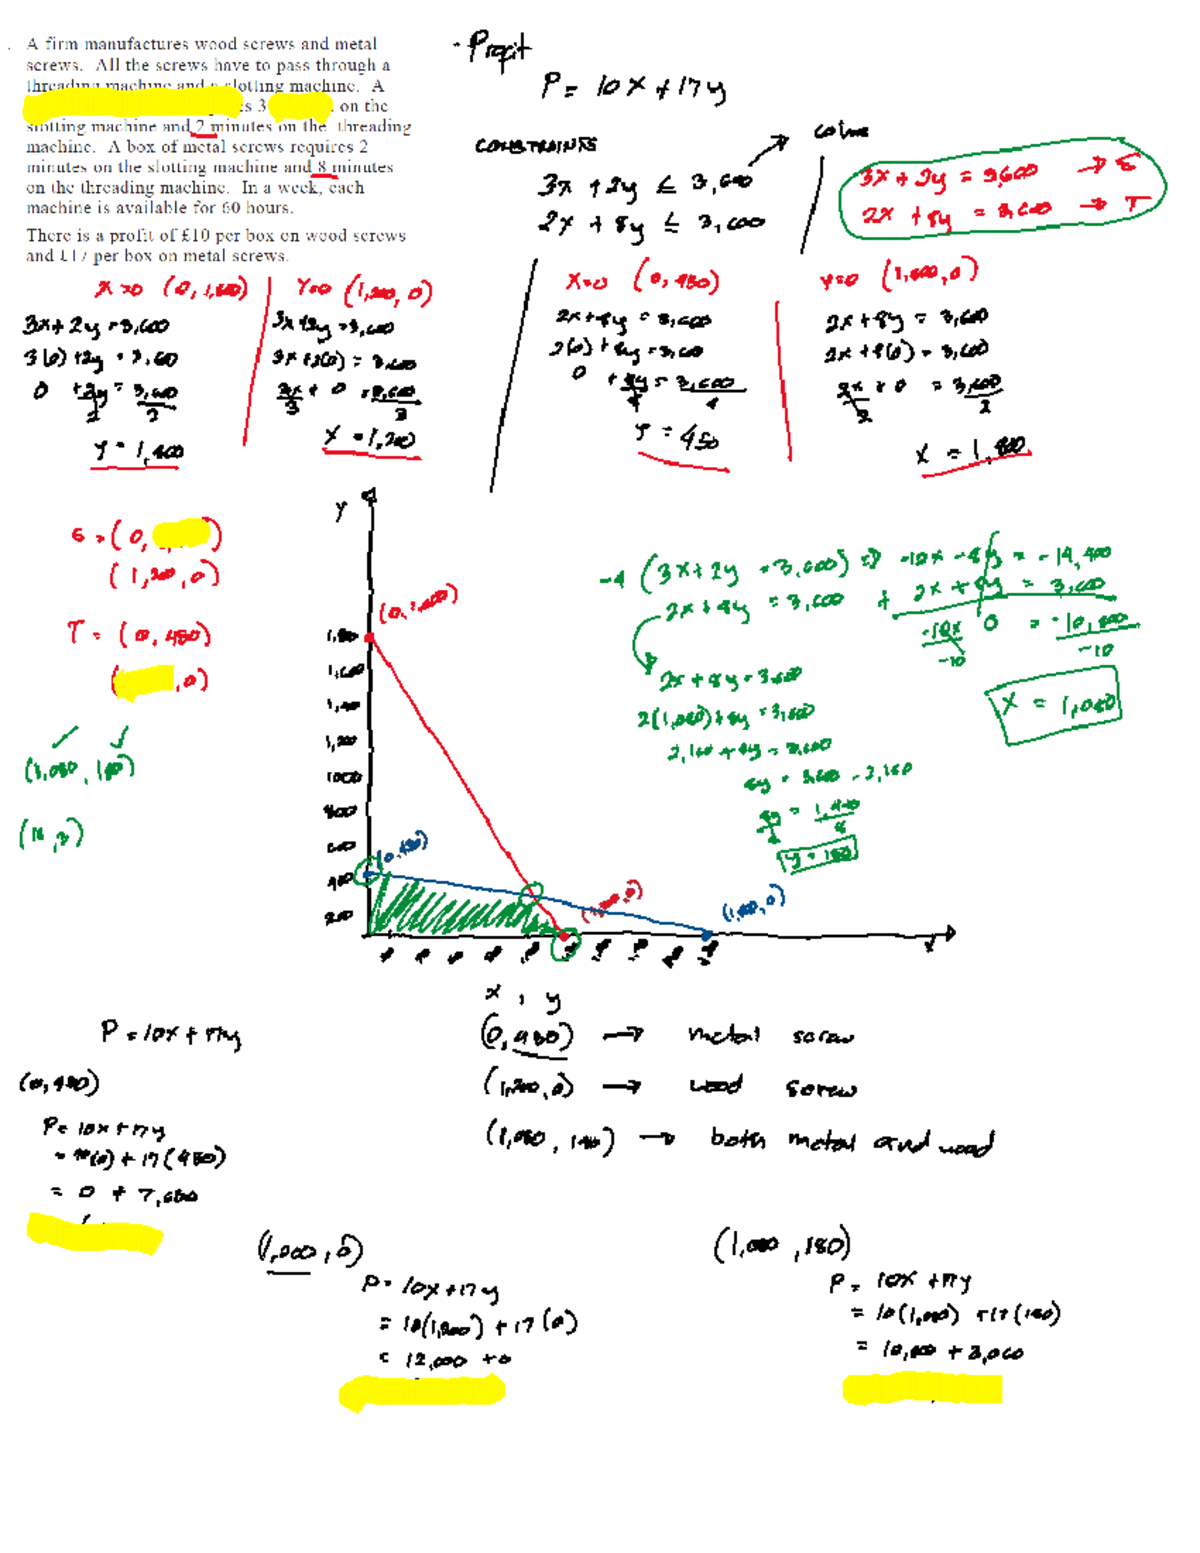 A firm manufactures wood screws and metal
screws. All the screws have to pass through a
threading machine and a slotting machine. A
s 3 on the
slotting machine and 2 minutes on the threading
machine. A box of metal screws requires 2
minutes on the slotting machine and 8 minutes
on the threading machine. In a week, each
machine is available for 60 hours.
There is a profit of £10 per box on wood screws
and £17 per box on metal screws.
Profit
P = 10x + 17y
CONSTRAINTS
3x + 2y ≤ 3,600
2x + 8y ≤ 3,600
3x + 2y = 3,600 → S
2x + 8y = 3,600 → T
x=0 (0, 1,800)
3x + 2y = 3,600
3(0) + 2y = 3,60
0 + 2y = 3,600
2 2
y = 1,800
y=0 (1,200, 0)
3x + 2y = 3,600
3x + 2(0) = 3,600
3x + 0 = 3,600
3 3
x = 1,200
x=0 (0, 450)
2x + 8y = 3,600
2(0) + 8y = 3,600
0 + 8y = 3,600
y = 450
y=0 (1,800, 0)
2x + 8y = 3,600
2x + 8(0) = 3,600
2x + 0 = 3,600
2 2
x = 1,800
S = (0, )
(1,200, 0)
T = (0, 450)
( , 0)
(1,080, 180)
y
(0, 1,800)
1,800
1,600
1,400
1,200
1000
800
600
400
200
(0, 450)
(1,200, 0)
(1,800, 0)
x
-4 (3x + 2y = 3,600) ⇒ -12x - 8y = -14,400
2x + 8y = 3,600 + 2x + 8y = 3,600
-10x 0 = -10,800
-10 -10
x = 1,080
2x + 8y = 3,600
2(1,080) + 8y = 3,600
2,160 + 8y = 3,600
8y = 3,600 - 2,160
8y = 1,440
8 8
y = 180
x , y
(0, 450) → metal screw
(1,200, 0) → wood screw
(1,080, 180) → both metal and wood
P = 10x + 17y
(0, 450)
P = 10x + 17y
= 10(0) + 17(450)
= 0 + 7,650
(1,200, 0)
P = 10x + 17y
= 10(1,200) + 17(0)
= 12,000 + 0
(1,080, 180)
P = 10x + 17y
= 10(1,080) + 17(180)
= 10,800 + 3,060